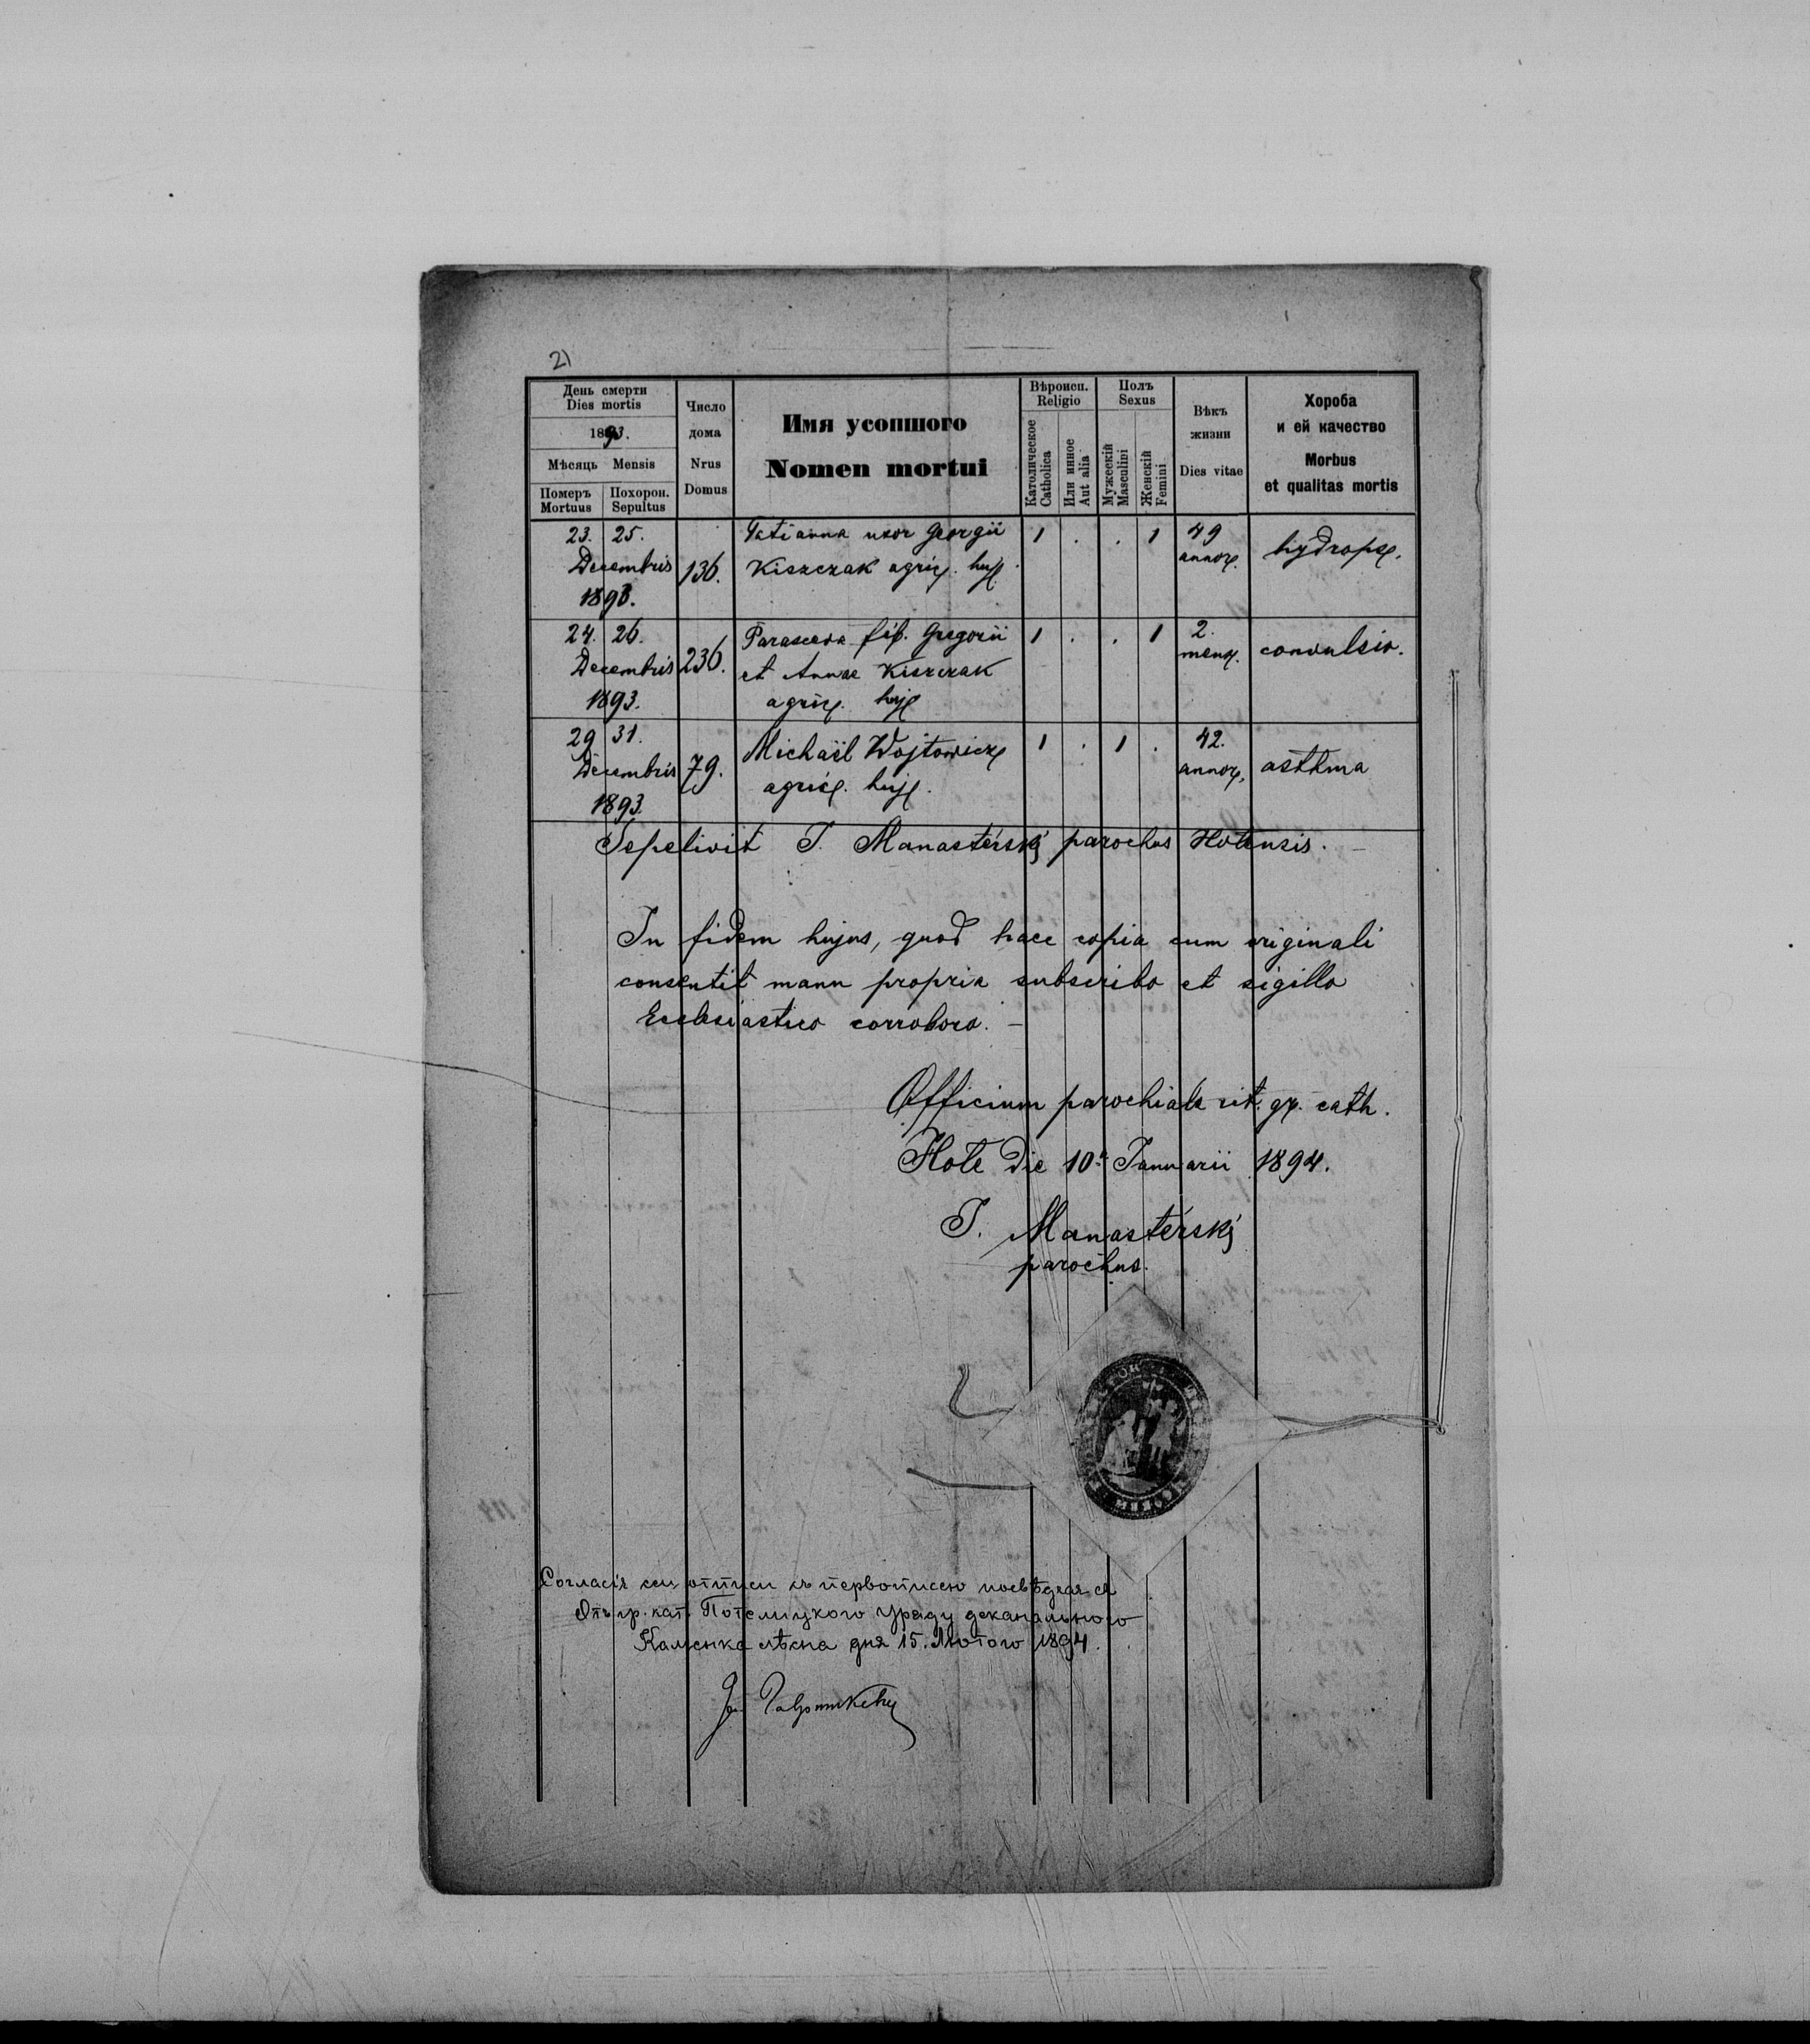 21
День смерти
Dies mortis
1893.
Мѣсяць Mensis
Померъ Похорон.
Mortuus Sepultus
Число
дома
Nrus
Domus
Имя усопшого
Nomen mortui
Вѣроисп.
Religio
Католическое
Catholica
Или инное
Aut alia
Полъ
Sexus
Мужескій
Masculini
Женскій
Femini
Вѣкъ
жизни
Dies vitae
Хороба
и ей качество
Morbus
et qualitas mortis
23. 25. Tatianna uxor Georgii 1 . . 1 49
Decembris 136. Kiszczak agric. huj. annor. hydrops.
1893.
24. 26. Parasceva fil. Gregorii 1 . . 1 2.
Decembris 236. et Annae Kiszczak mens. convulsio.
1893. agric. huj.
29 31. Michaël Wojtowicz 1 . 1 . 42.
Decembris 79. agric. huj. annor. asthma
1893.
Sepelivit T. Manasterskj parochus Hotensis. —
In fidem hujus, quod haec copia cum originali
consentit manu propria subscribo et sigillo
Ecclesiastico corroboro. —
Officium parochiale rit. gr. cath.
Hote die 10. Januarii 1894.
T. Manasterskj
parochus.
Согласіе сеи отписи съ первописею посвѣдчая ся
Отъ гр. кат. Потелицкого Уряду деканального
Каменка лѣсна дня 15. Лютого 1894.